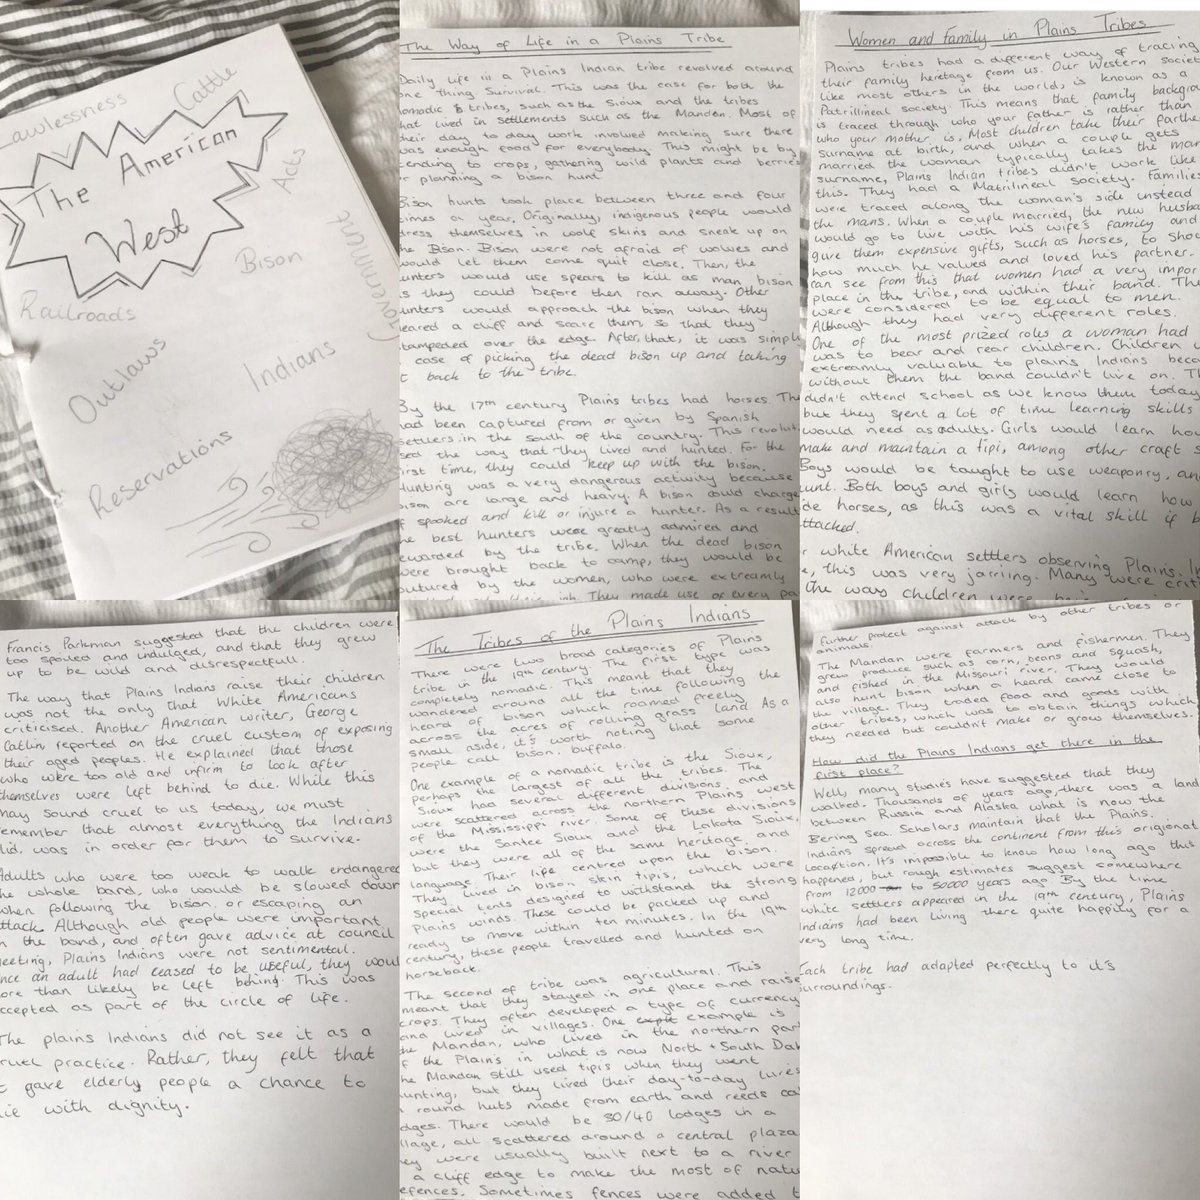 Lawlessness
Cattle
The American
West
Acts
Government
Bison
Railroads
Outlaws
Indians
Reservations
The Way of Life in a Plains Tribe
Daily life in a Plains Indian tribe revolved around
one thing Survival. This was the case for both the
nomadic tribes, such as the Sioux and the tribes
hat lived in settlements such as the Mandan. Most of
heir day to day work involved making sure there
was enough food for everybody. This might be by
tending to crops, gathering wild plants and berries
or planning a bison hunt
Bison hunts took place between three and four
times a year, Originally, indigenous people would
dress themselves in wolf skins and sneak up on
he Bison. Bison were not afraid of wolves and
would let them come quit close. Then, the
unters would use spears to kill as man bison
s they could before then ran away. Other
unters would approach the bison when they
eared a cliff and scare them so that they
tampeded over the edge. After that, it was simply
case of picking the dead bison up and taking
t back to the tribe.
By the 17th century Plains tribes had horses. The
had been captured from or given by Spanish
settlers in the south of the country. This revoluti
sed the way that they lived and hunted. For the
irst time, they could keep up with the bison.
Hunting was a very dangerous activity because
bison are large and heavy. A bison could charge
f spooked and kill or injure a hunter. As a result
he best hunters were greatly admired and
ewarded by the tribe. When the dead bison
were brought back to camp, they would be
outured by the women, who were extreamly
They made use of every pa
Women and Family in Plains Tribes
Plains tribes had a different way of tracing
their family heretage from us. Our Western societ
like most others in the world, is known as a
Patrillineal society. This means that family backgrou
is traced through who your father is rather than
who your mother is. Most children take their farther
surname at birth, and when a couple gets
married the woman typically takes the man
surname, Plains Indian tribes didn't work like
this. They had a Matrilineal society- Families
were traced along the woman's side instead
the mans. When a couple married, the new husba
would go to live with his wife's family and
gave them expensive gifts, such as horses, to sho
how much he valued and loved his partner.
can see from this that women had a very impor
place in the tribe, and within their band. The
were considered to be equal to men.
Although they had very different roles.
One of the most prized roles a woman had
was to bear and rear children. Children w
extreamly valuable to plains Indians beca
without them the band couldn't live on. Th
didn't attend school as we know them today
but they spent a lot of time learning skills
would need as adults. Girls would learn how
make and maintain a tipi, among other craft s
Boys would be taught to use weaponry, and
unt. Both boys and girls would learn how
de horses, as this was a vital skill if b
ttacked.
r white American settlers observing Plains. In
e, this was very jarring. Many were crit
the way children were
Francis Parkman suggested that the children were
too spoiled and indulged, and that they grew
up to be wild and disrespectfull.
The way that Plains Indians raise their children
was not the only that White Americans
criticised. Another American writer, George
Catlin reported on the cruel custom of exposing
their aged peoples. He explained that those
who were too old and infirm to look after
themselves were left behind to die. While this
may sound cruel to us today, we must
remember that almost everything the Indians
did, was in order for them to survive.
Adults who were too weak to walk endangered
he whole band, who would be slowed down
when following the bison. or escaping an
ttack. Although old people were important
n the band, and often gave advice at council
eeting, Plains Indians were not sentimental.
nce an adult had ceased to be useful, they woul
ore than likely be left behing. This was
ccepted as part of the circle of life.
The plains Indians did not see it as a
ruel practice. Rather, they felt that
t gave elderly people a chance to
ie with dignity.
The Tribes of the Plains Indians
There were two broad categories of Plains
tribe in the 19th century. The first type was
completely nomadic. This meant that they
wandered around all the time following the
heard of bison which roamed freely
across the acres of rolling grass land As a
small aside, it's worth noting that some
people call bison. buffalo.
One example of a nomadic tribe is the Sioux,
perhaps the largest of all the tribes. The
Sioux had several different divisions, and
were scattered across the northern Plains west
of the Mississippi river. Some of these divisions
were the Santee Sioux and the Lakota Sioux,
but they were all of the same heritage, and
language. Their life centred upon the bison.
They lived in bison skin tipi's, which were
special tents designed to withstand the strong
Plains winds. These could be packed up and
ready to move within ten minutes. In the 19th
century, these people travelled and hunted on
horseback.
The second of tribe was agricultural. This
meant that they stayed in one place and raise
crops. They often developed a type of currency
and lived in villages. One example is
the Mandan, who lived in the northern par
f the Plain's in what is now North + South Dak
he Mandan still used tipis when they went
unting, but they lived their day-to-day lives
n round huts made from earth and reeds ca
odges. There would be 30/40 lodges in a
llage, all scattered around a central plaza
ey were usually built next to a river
a cliff edge to make the most of natu
efences. Sometimes fences were added t
further protect against attack by other tribes or
animals.
The Mandan were farmers and fishermen. They
grew produce such as corn, beans and squash,
and fished in the Missouri river. They would
also hunt bison when a heard came close to
the village. They traded food and goods with
other tribes, which was to obtain things which
they needed but couldn't make or grow themselves.
How did the Plains Indians get there in the
first place?
Well, many studies have suggested that they
walked. Thousands of years ago, there was a land
between Russia and Alaska what is now the
Bering Sea. Scholars maintain that the Plains.
Indians spread across the continent from this origional
Location. It's impossible to know how long ago this
happened, but rough estimates suggest somewhere
from 12000 to 50000 years ago. By the time
white settlers appeared in the 19th century, Plains
Indians had been living there quite happily for a
very long time.
Each tribe had adapted perfectly to it's
surroundings.